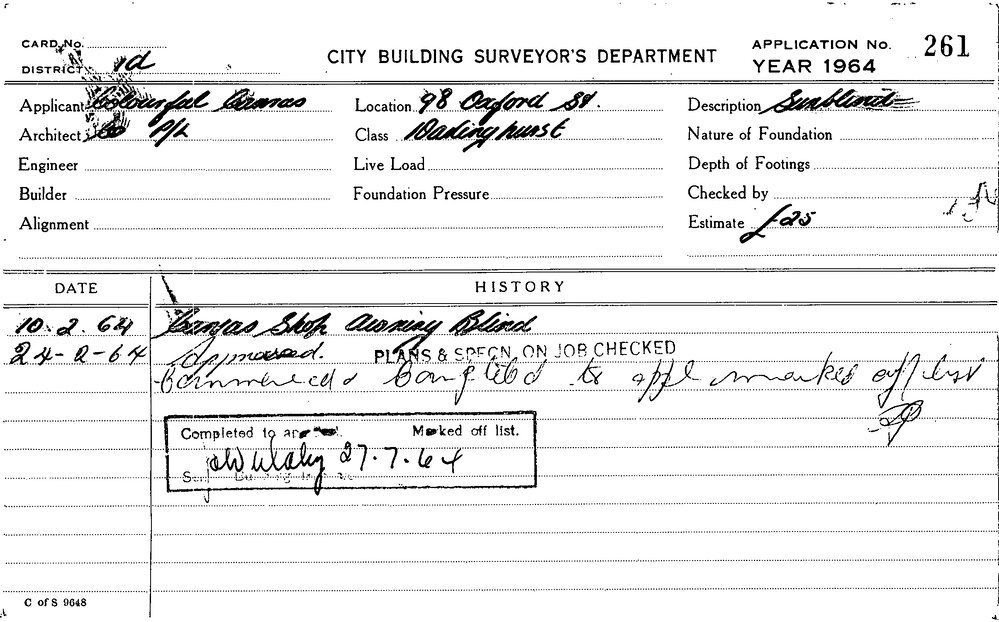 CARD No.
CITY BUILDING SURVEYOR'S DEPARTMENT
APPLICATION No. 261
DISTRICT 1d
YEAR 1964
Applicant Colourful Canvas
Location 98 Oxford St.
Description Sunblind
Architect Co P/L
Class Darlinghurst
Nature of Foundation
Engineer
Live Load
Depth of Footings
Builder
Foundation Pressure
Checked by
Alignment
Estimate £25
DATE
HISTORY
10.2.64 Canvas Shop Awning Blind
24-2-64 Approved. PLANS & SPECN. ON JOB CHECKED
Commenced & Completed to appl marked off list
Completed to Marked off list.
27.7.64
C of S 9648